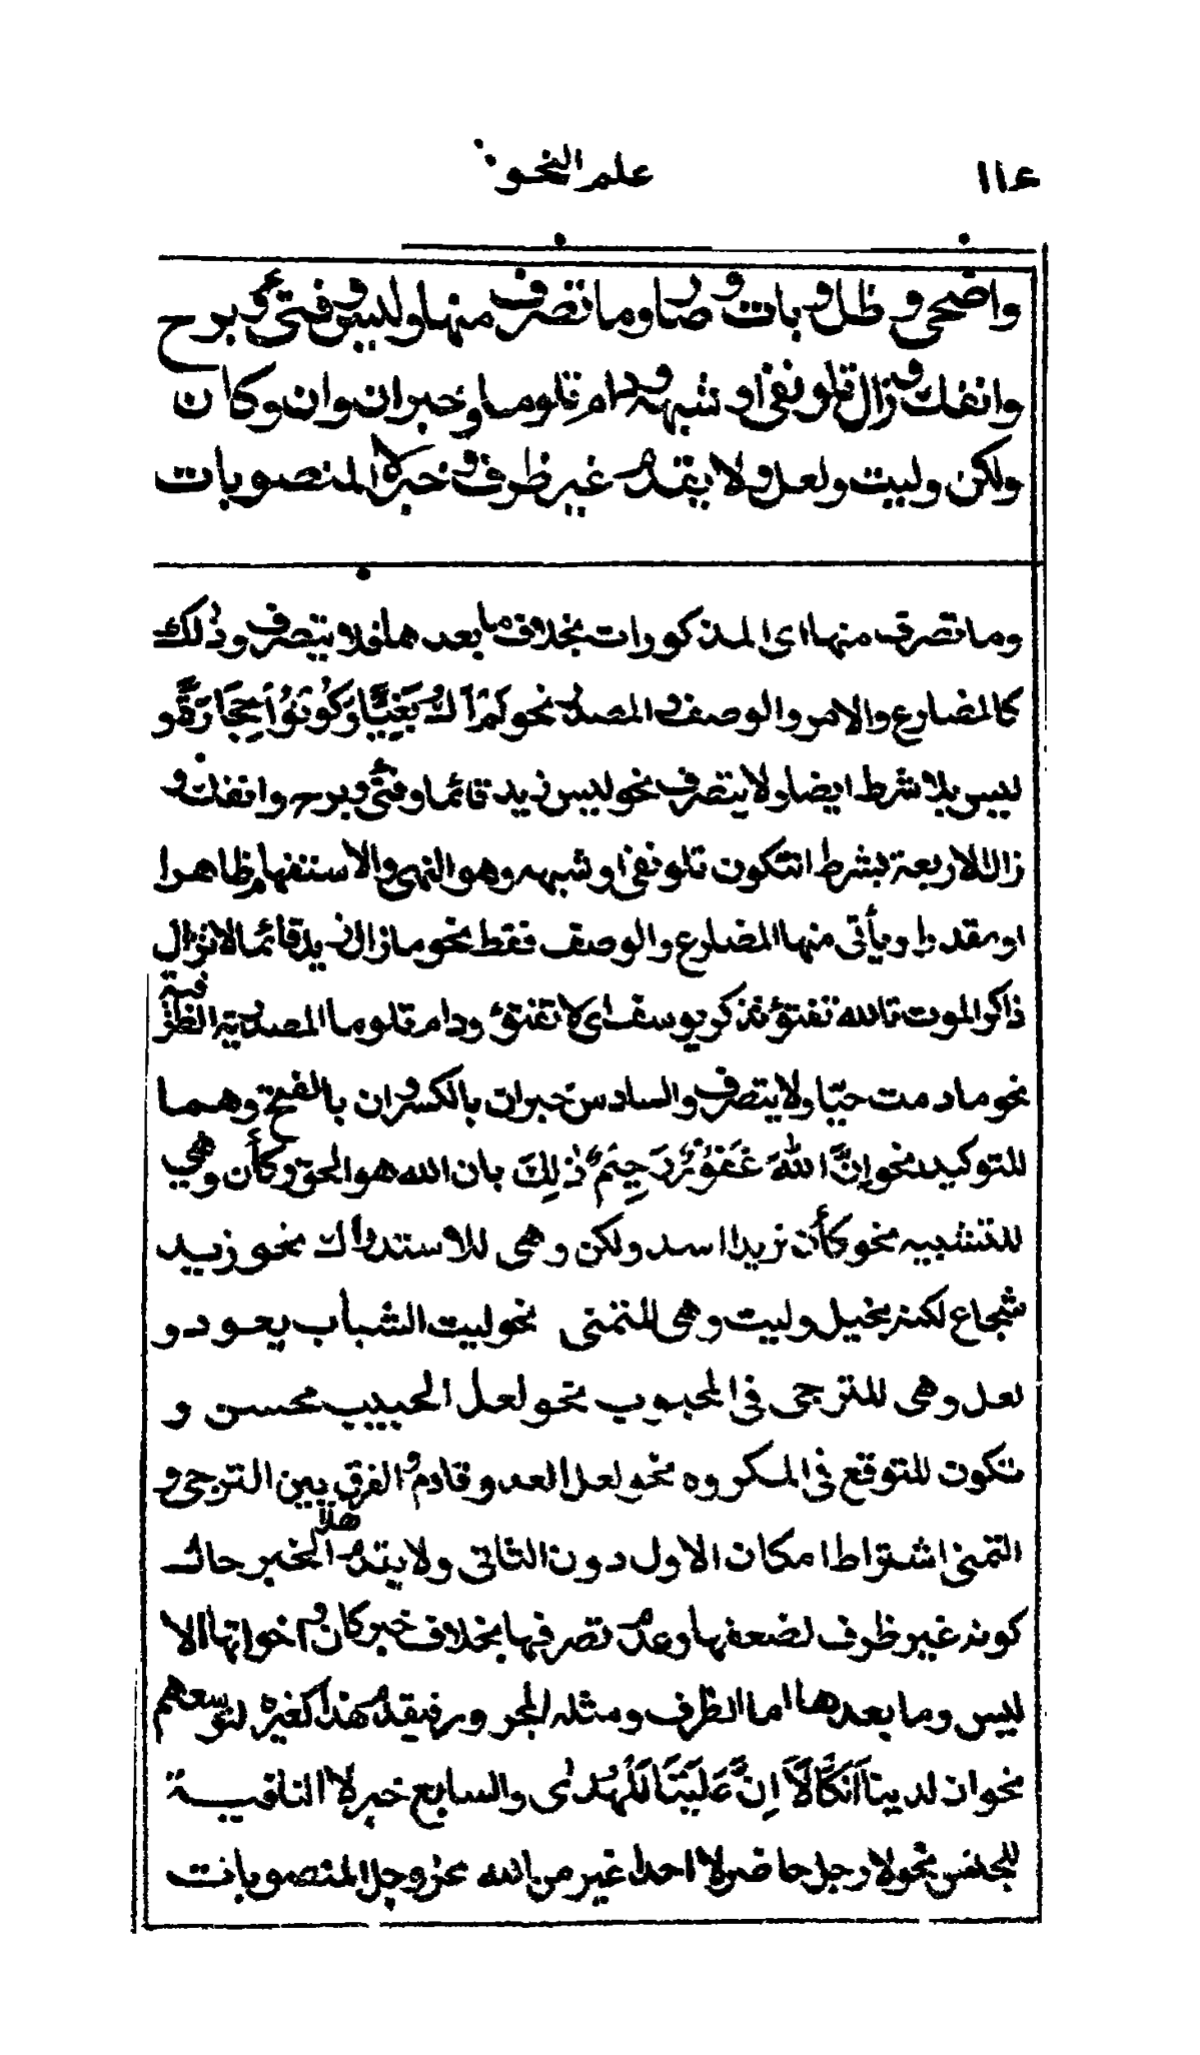 ١١٤ علم النحو
واضحى و ظل و بات و صار وما تصرف منها وليس و فتئ و برح
وانفك و زال تلو نفي او شبهه و دام تلو ما و خبر ان وان وكان
ولكن وليت ولعل ولا يقدم غير ظرف و خبر لا المنصوبات
وما تصرف منها اى المذكورات بخلاف ما بعدها فلا يتصرف وذلك
كالمضارع والامر والوصف و المصدر نحو لَمْ اَكُ بَغِيًّا وَكُونُوْا حِجَارَةً و
ليس بلا شرط ايضا ولا يتصرف نحو ليس زيد قائما وفتئ و برح وانفك و
زال الاربعة بشرط ان تكون تلو نفي او شبهه وهو النهى والاستفهام ظاهرا
او مقدرا ويأتى منها المضارع والوصف فقط نحو ما زال زيد قائما لا تزال
ذاكر الموت تالله تفتؤ تذكر يوسف اى لا تفتؤ ودام تلو ما المصدرية الظرفية
نحو ما دمت حيّا ولا يتصرف والسادس خبر ان بالكسر و ان بالفتح وهما
للتوكيد نحو اِنَّ اللهَ غَفُوْرٌ رَحِيْمٌ ذٰلِكَ بان الله هو الحق وكأن وهي
للتشبيه نحو كأن زيدا اسد ولكن وهى للاستدراك نحو زيد
شجاع لكنه بخيل وليت وهى للتمنى نحو ليت الشباب يعود و
لعل وهى للترجى فى المحبوب نحو لعل الحبيب محسن و
تكون للتوقع فى المكروه نحو لعل العدو قادم و الفرق بين الترجى و
التمنى اشتراط امكان الاول دون الثانى ولا يقدم هذا الخبر حال
كونه غير ظرف لضعفها وعدم تصرفها بخلاف خبر كان و اخواتها الا
ليس وما بعدها اما الظرف ومثله المجرور فيقدم هذا كغيره لتوسعهم
نحو ان لدينا اَنْكَالًا اِنَّ عَلَيْنَا لَلْهُدٰى والسابع خبر لا النافية
للجنس نحو لا رجل حاضر لا احد اغير من الله عز وجل المنصوبات